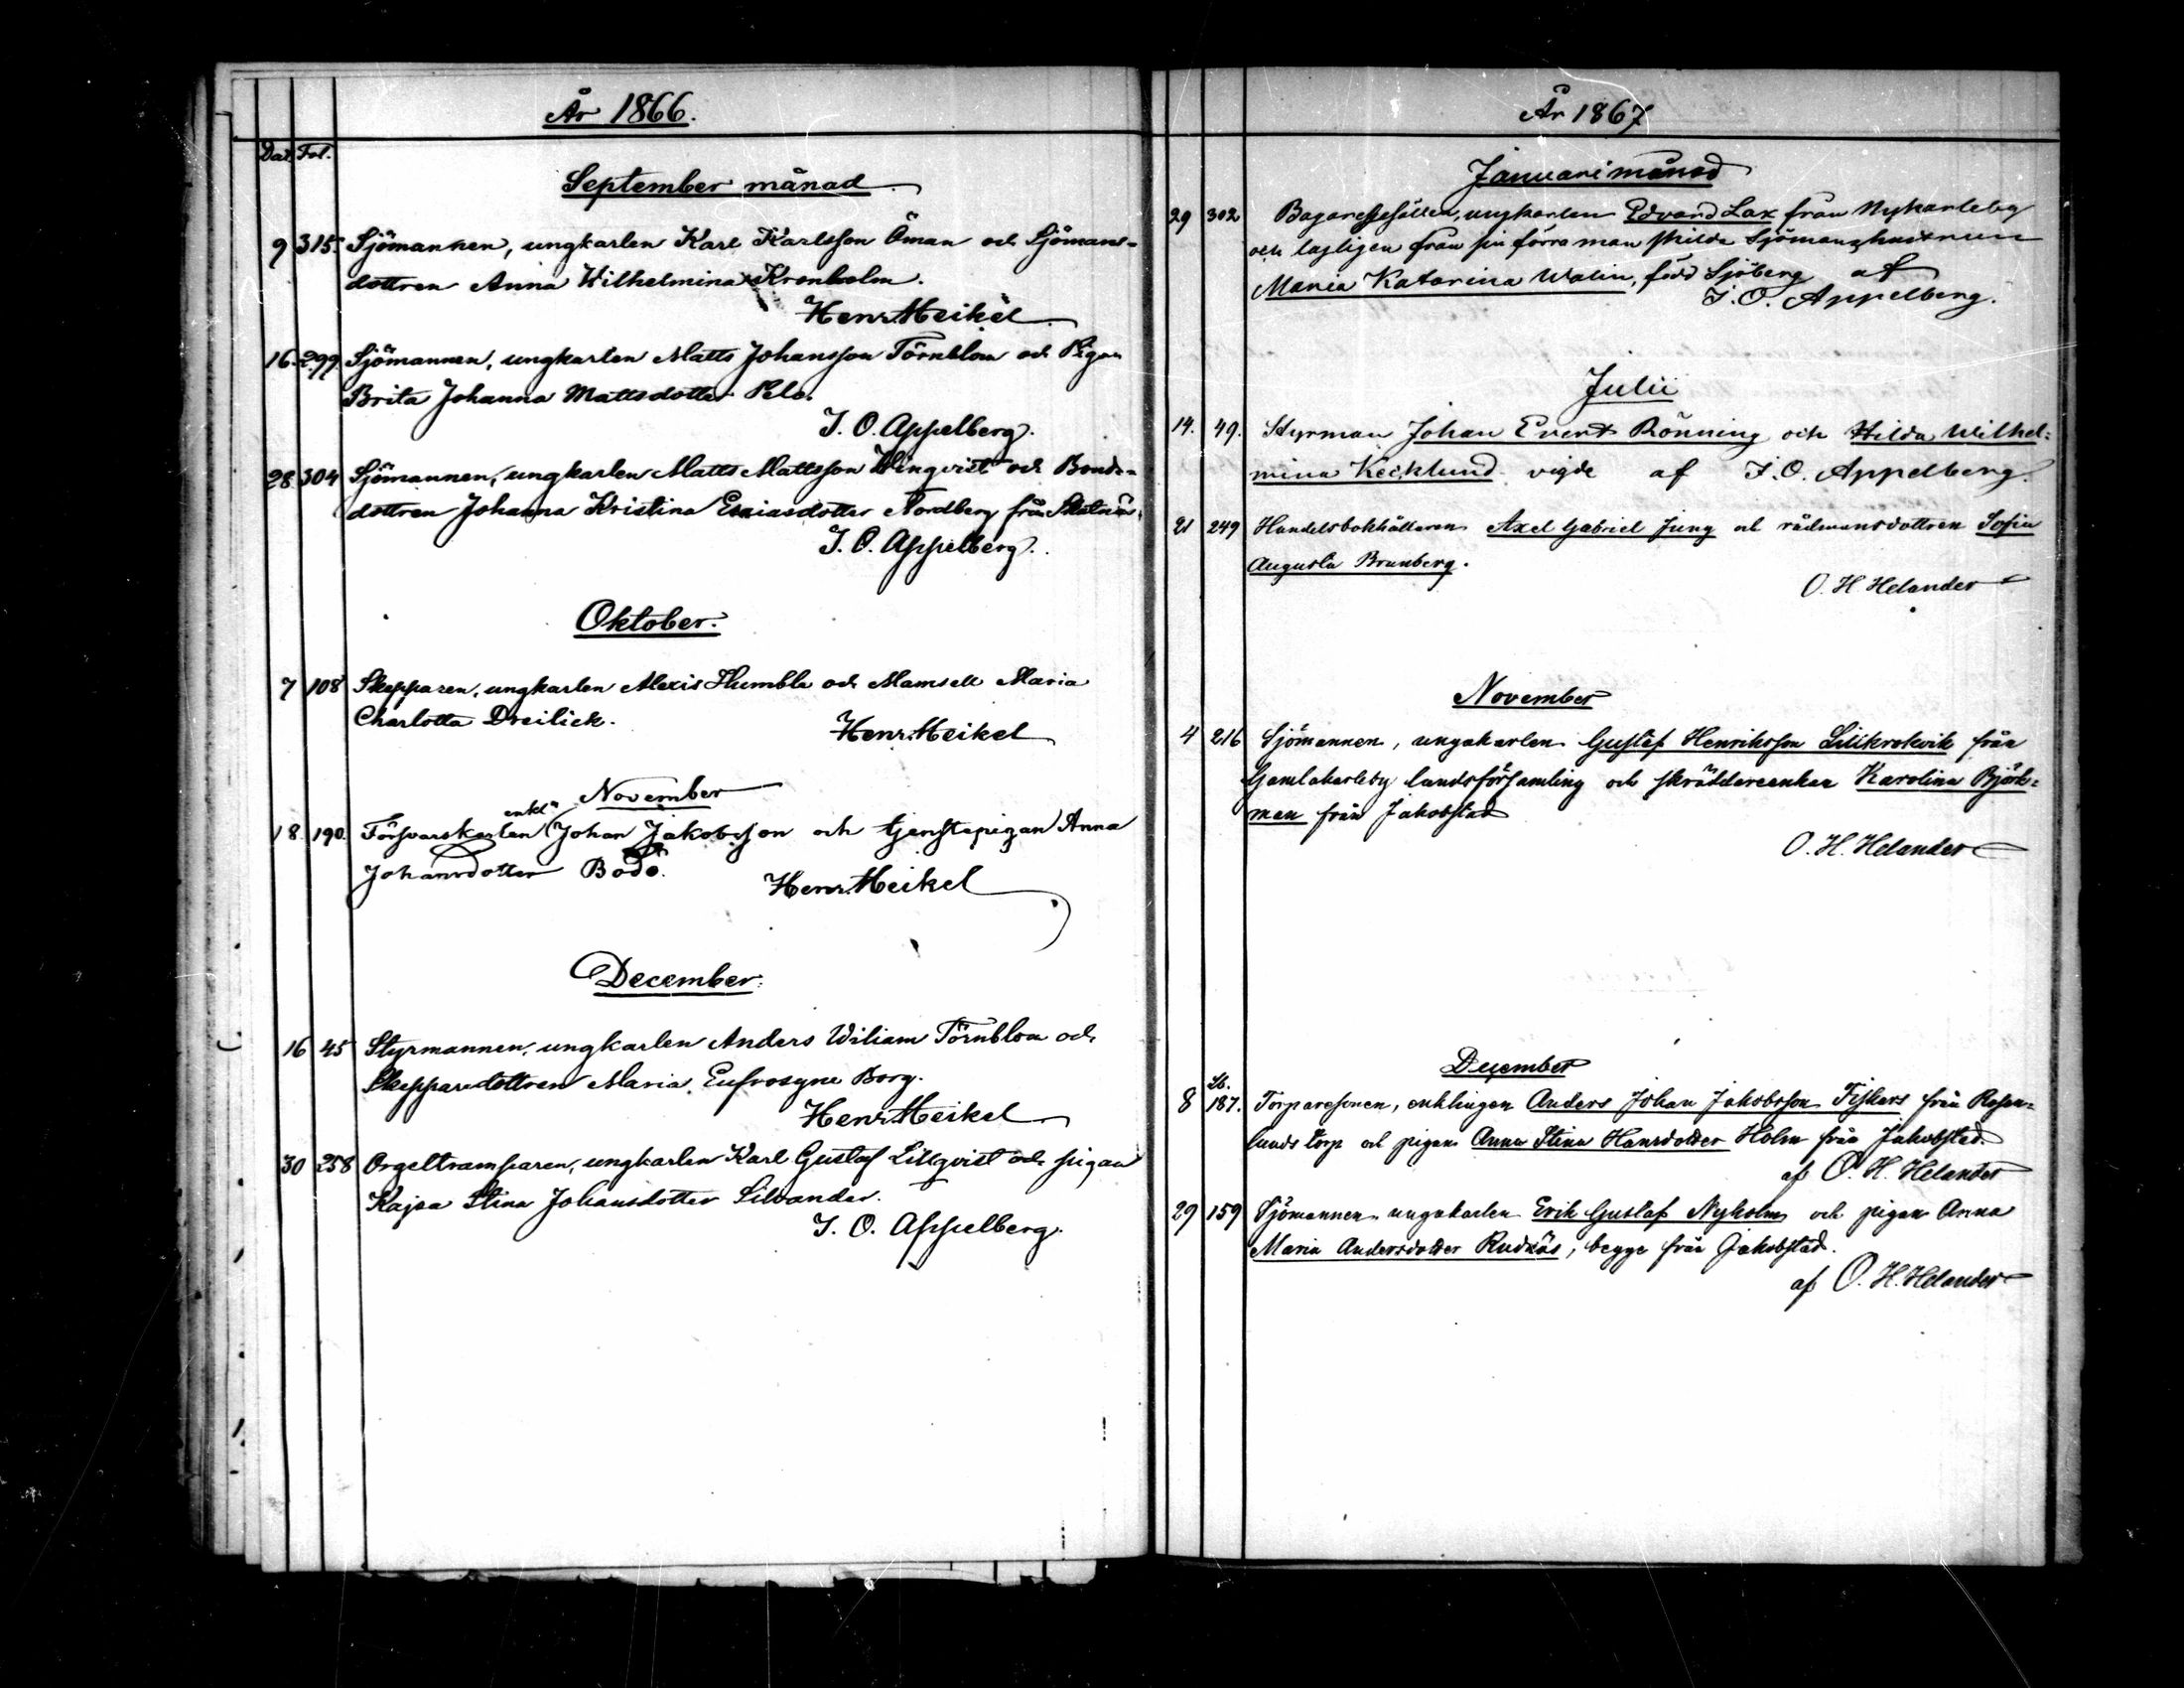 År 1866.
Dat. Fol.
September månad
9 315. Sjömannen, ungkarlen Karl Karlsson Öman och Sjömans-
dottren Anna Wilhelmina Kronholm.
Henr. Heikel
16. 299. Sjömannen, ungkarlen Matts Johansson Törnblom och Pigan
Brita Johanna Mattsdotter Pelo.
I. O. Appelberg.
28 304 Sjömannen, ungkarlen Matts Mattsson Winqvist och Bonde-
dottren Johanna Kristina Esaiasdotter Nordberg från
I. O. Appelberg.
Oktober.
7 108 Skepparen, ungkarlen Alexis Humble och Mamsell Maria
Charlotta Dreilick.
Henr. Heikel
November
enkl
18. 190. Försvarskarlen Johan Jakobsson och tjenstepigan Anna
Johansdotter Bodö.
Henr. Heikel
December.
16 45 Styrmannen, ungkarlen Anders Wiliam Törnblom och
Skepparedottren Maria Eufrosyne Borg.
Henr. Heikel
30 258 Orgeltramparen, ungkarlen Karl Gustaf Lillqvist och pigan
Kajsa Stina Johansdotter Silvander.
I. O. Appelberg.
År 1867
Januari månad
29 302 Bagaregesällen, ungkarlen Edvard Lax från Nykarleby
och lagligen från sin förra man skilda Sjömanshustrun
Maria Katarina Walin, född Sjöberg af
I. O. Appelberg.
Julii
14. 49. Styrman Johan Evert Rönning och Hilda Wilhel-
mina Kecklund vigde af I. O. Appelberg.
21 249 Handelsbokhållaren Axel Gabriel Jung och rådmansdottren Sofia
Augusta Brunberg.
O. H. Helander
November
4 216 Sjömannen, ungakarlen Gustaf Henriksson från
Gamlakarleby landsförsamling och skräddareenkan Karolina Björk-
man från Jakobstad
O. H. Helander
December
8 187. Torparesonen, enklingen Anders Johan Jakobsson Fiskars från Rosen-
lunds torp och pigan Anna Stina Hansdotter Holm från Jakobstad.
af O. H. Helander
29 159 Sjömannen ungakarlen Erik Gustaf Nyholm och pigan Anna
Maria Andersdotter Rudnäs, begge från Jakobstad.
af O. H. Helander